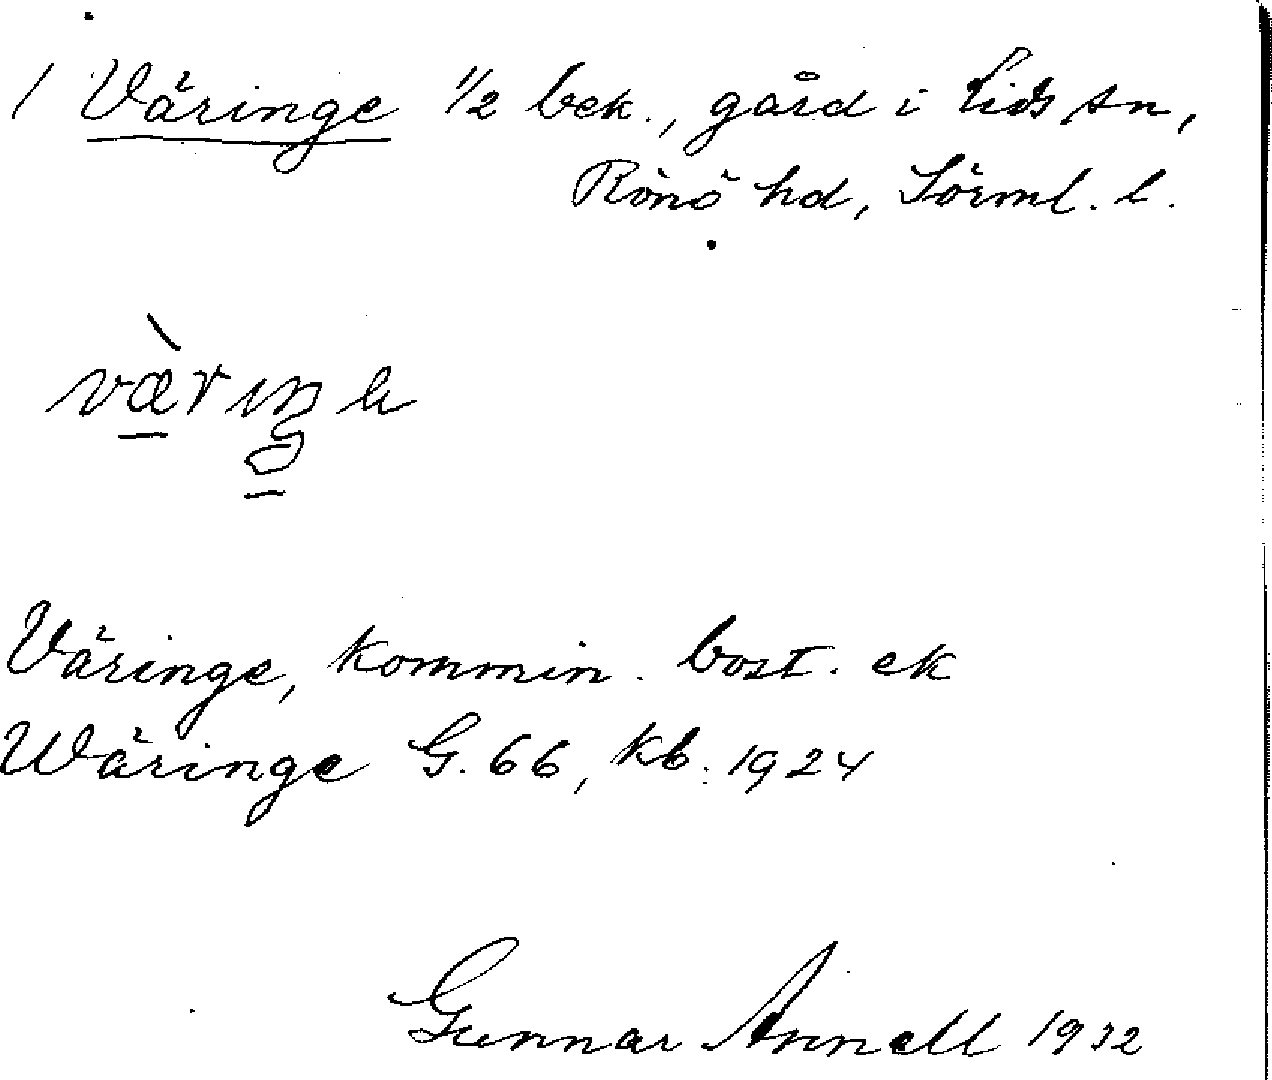 / Väringe 1/2 bek., gård i Lids sn,
Rönö hd, Sörml. l.
Väringe, kommin. bost. ek
Wäringe G. 66, kb. 1924
Gunnar Annell 1932